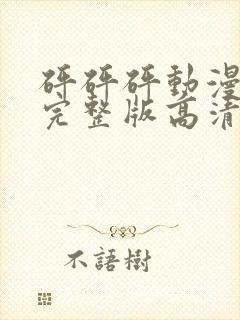 砰砰砰動漫
完整版高清
不語樹